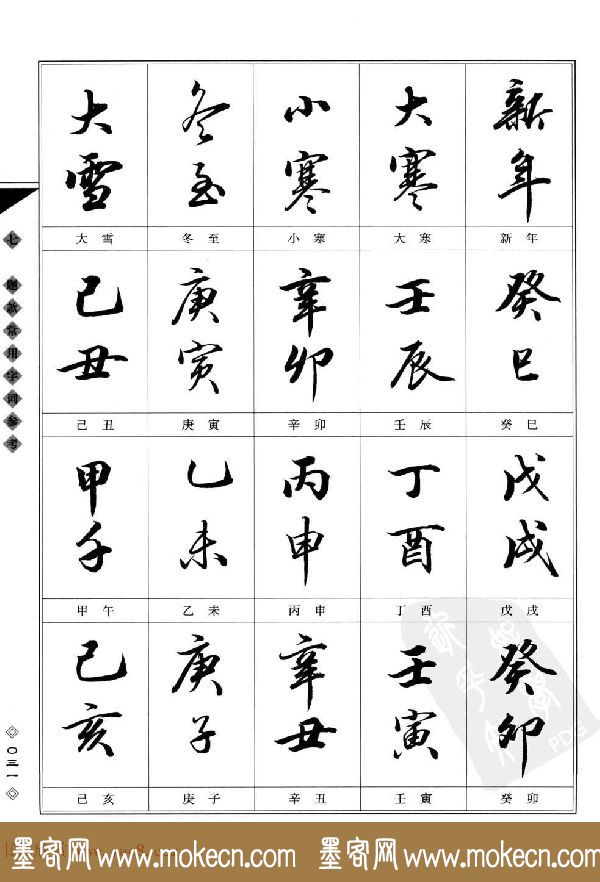 大雪 冬至 小寒 大寒 新年
大雪 冬至 小寒 大寒 新年
己丑 庚寅 辛卯 壬辰 癸巳
己丑 庚寅 辛卯 壬辰 癸巳
甲午 乙未 丙申 丁酉 戊戌
甲午 乙未 丙申 丁酉 戊戌
己亥 庚子 辛丑 壬寅 癸卯
己亥 庚子 辛丑 壬寅 癸卯
七 题款常用字词参考
〇三一
PDG
墨客网 www.mokecn.com 墨客网 www.mokecn.com